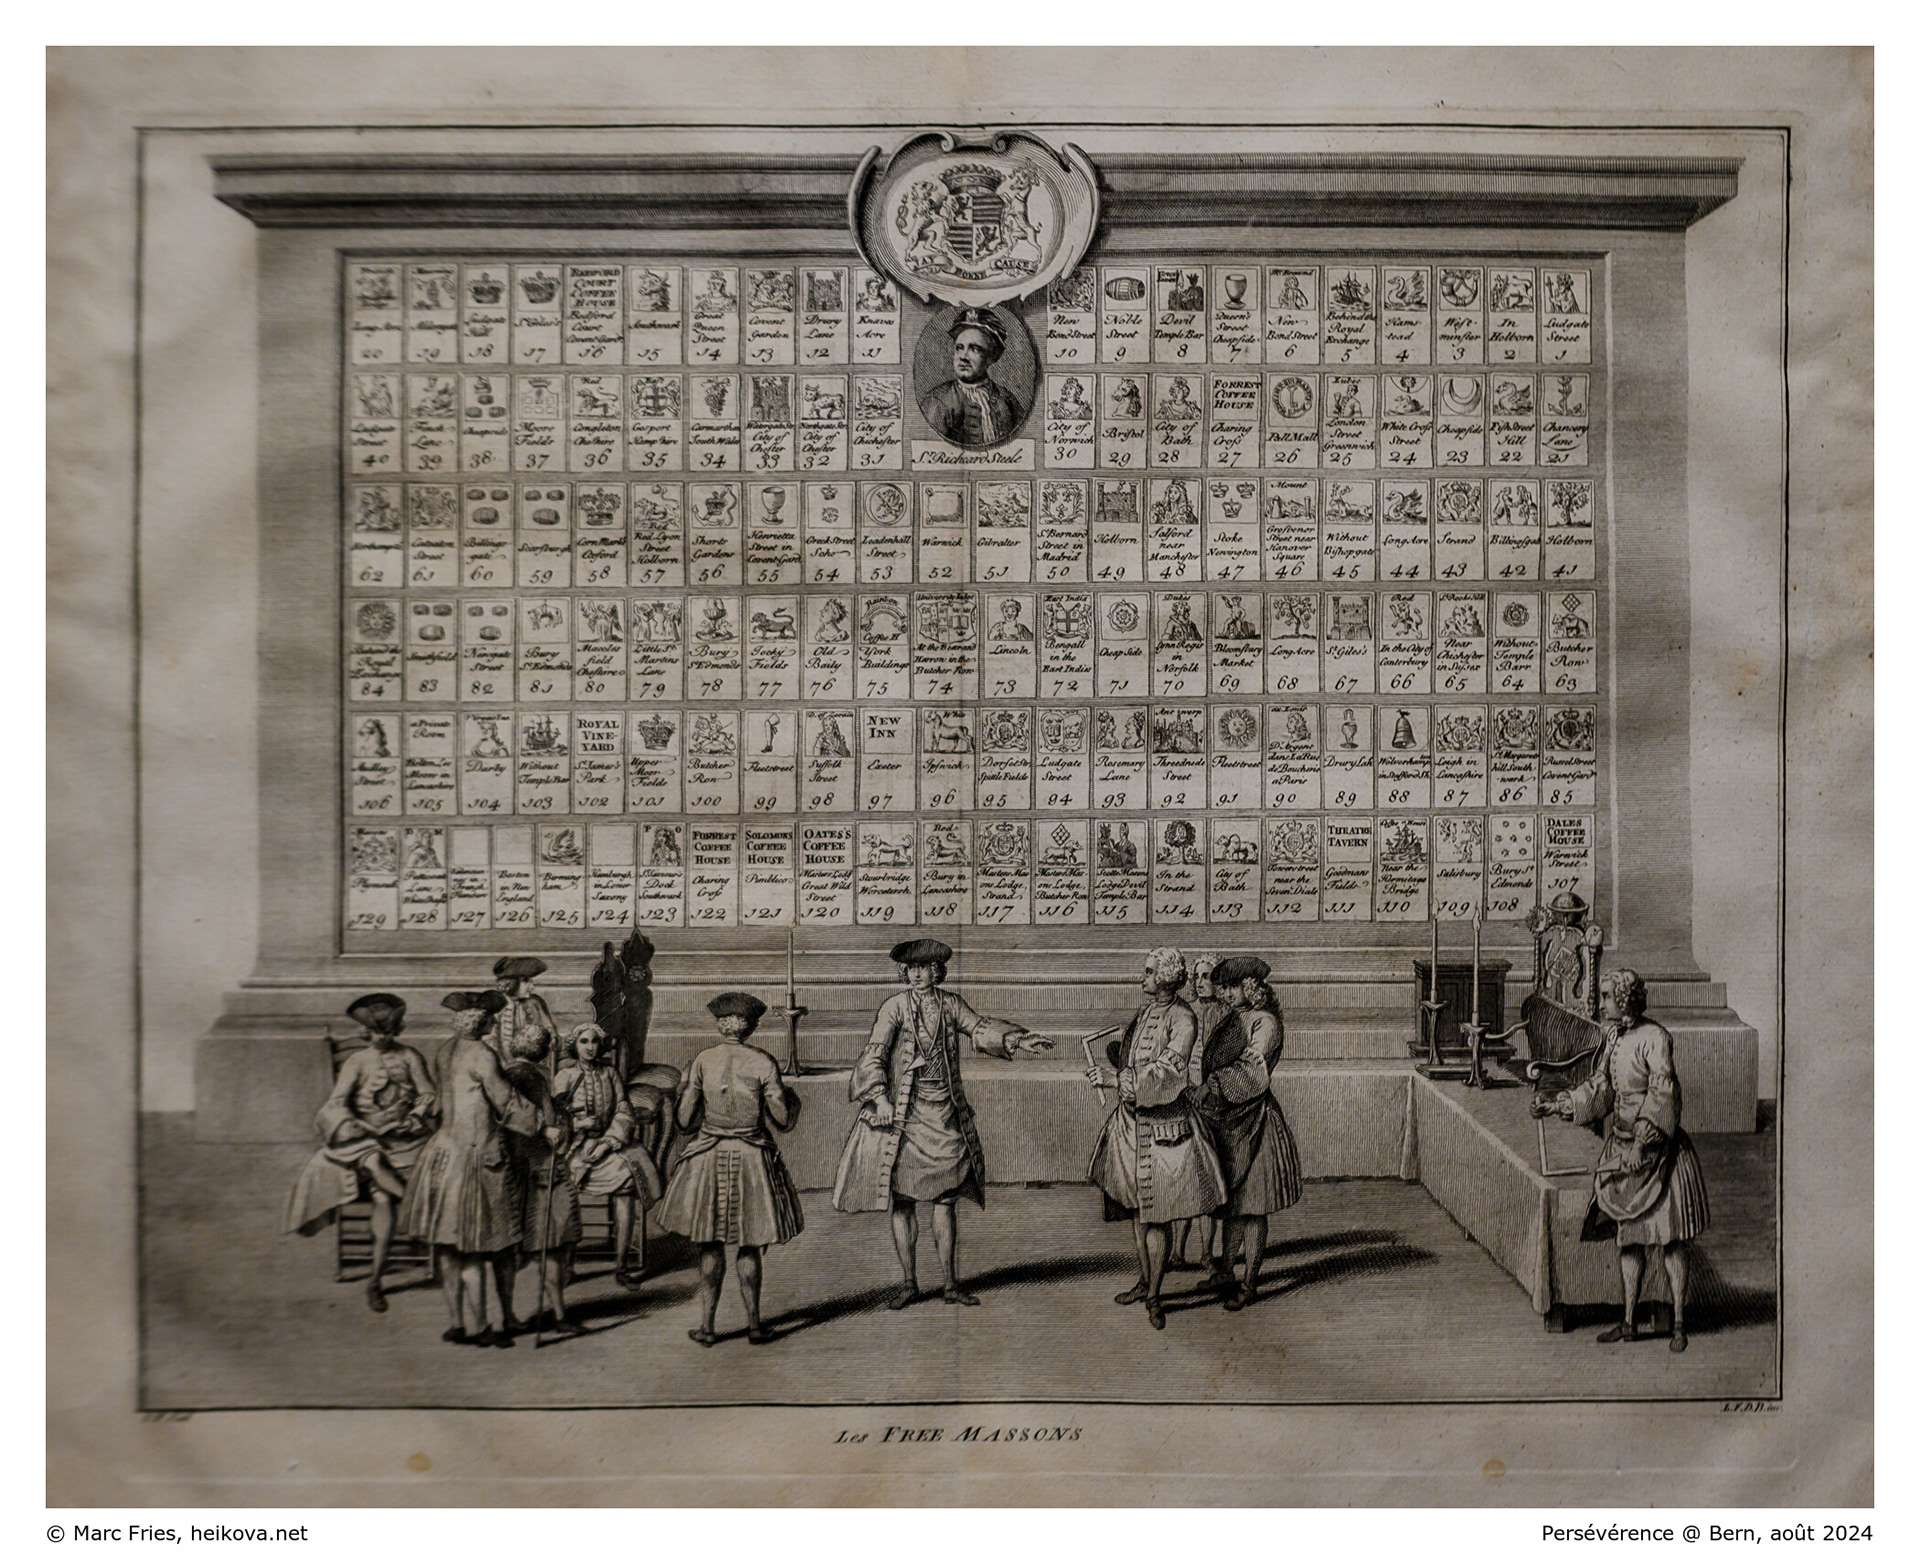 AY BONNE CAUSE
Long Acre
20
Aldersgate
19
Ludgate
Hill
18
St Giles's
17
BEDFORD
COURT
COFFEE
HOUSE
Bedford
Court
Covent Gard
16
Southwark
15
Great
Queen
Street
14
Covent
Garden
13
Drury
Lane
12
Knaves
Acre
11
New
Bond Street
10
Noble
Street
9
Devil
Temple Bar
8
Queen's
Street
Cheapside
7
New
Bond Street
6
Behind the
Royal
Exchange
5
Hams
tead
4
West
minster
3
In
Holborn
2
Ludgate
Street
1
Ludgate
Street
40
Finch
Lane
39
Cheapside
38
Moore
Fields
37
Red
Congleton
Cheshire
36
Gosport
Hampshire
35
Carmarthen
South Wales
34
Watergate Str
City of
Chester
33
Northgate Str
City of
Chester
32
City of
Chichester
31
Sr. Richard Steele
City of
Norwich
30
Bristol
29
City of
Bath
28
FORREST
COFFEE
HOUSE
Charing
Cross
27
Pall Mall
26
London
Street
Greenwich
25
White Cross
Street
24
Cheapside
23
Fish Street
Hill
22
Chancery
Lane
21
Northampton
62
Street
61
Billings-
gate
60
Scarsburgh
59
Corn Mark
Oxford
58
Red
Red Lyon
Street
Holborn
57
Shorts
Gardens
56
Henrietta
Street in
Covent Gard
55
Greek Street
Soho
54
Leadenhall
Street
53
Warwick
52
Gibralter
51
St Bernard
Street in
Madrid
50
Holborn
49
Salford
near
Manchester
48
Stoke
Newington
47
Mount
Grosvenor
Street near
Hanover
Square
46
Without
Bishopsgate
45
Long Acre
44
Strand
43
Billingsgate
42
Holborn
41
Behind the
Royal
Exchange
84
Smithfield
83
Newgate
Street
82
Bury
St Edmonds
81
Maccles
field
Cheshire
80
Little St
Martins
Lane
79
Bury
St Edmonds
78
Jocky
Fields
77
Old
Baily
76
Rainbow
Coffee H
York
Buildings
75
University Lodge
At the Bear and
Harrow in the
Butcher Row
74
Lincoln
73
East India
Bengall
in the
East Indies
72
Cheap Side
71
Dukes
Lynn Regis
in
Norfolk
70
Bloomsbury
Market
69
Long Acre
68
St Giles's
67
Red
In the City of
Canterbury
66
Near
Chichester
in Sussex
65
Without
Temple
Barr
64
Butcher
Row
63
Audley
Street
106
a Private
Room
Bolton Lee
Moore in
Lancashire
105
Virgins Inn
Darby
104
Without
Temple Bar
103
ROYAL
VINE-
YARD
St James's
Park
102
Upper
Moor
Fields
101
Butcher
Row
100
Fleetstreet
99
D. of Lorain
Suffolk
Street
98
NEW
INN
Exeter
97
White
Ipswich
96
Dorset Str
Spittle Fields
95
Ludgate
Street
94
Rosemary
Lane
93
Antwerp
Threedneedle
Street
92
Fleetstreet
91
au Louis
D'Argent
dans La Rue
de Boucherie
a Paris
90
Drury Lane
89
Wolverhamp
in Stafford Sh
88
Leigh in
Lancashire
87
St Margaret
hill South
wark
86
Russel Street
Covent Gard
85
Plymouth
129
Petticoat
Lane
White Chaple
128
Valenciennes
in French
Flanders
127
Boston
in New
England
126
Birming
ham
125
Hamburgh
in Lower
Saxony
124
P O
St Saviour's
Dock
Southwark
123
FORREST
COFFEE
HOUSE
Charing
Cross
122
SOLOMONS
COFFEE
HOUSE
Pimblico
121
OATES'S
COFFEE
HOUSE
Masters Lodge
Great Wild
Street
120
Stourbridge
Worcetersh
119
Red
Bury in
Lancashire
118
Masters Mas
ons Lodge,
Strand
117
Masters Mas
ons Lodge,
Butcher Row
116
Scotts Masons
Lodge Devil
Temple Bar
115
In the
Strand
114
City of
Bath
113
Tower street
near the
Seven Dials
112
THEATRE
TAVERN
Goodmans
Fields
111
Coffee House
near the
Hermitage
Bridge
110
Salisbury
109
Bury St
Edmonds
108
DALES
COFFEE
HOUSE
Warwick
Street
107
L.F.D.B. inv.
Les FREE MASSONS
© Marc Fries, heikova.net
Persévérence @ Bern, août 2024